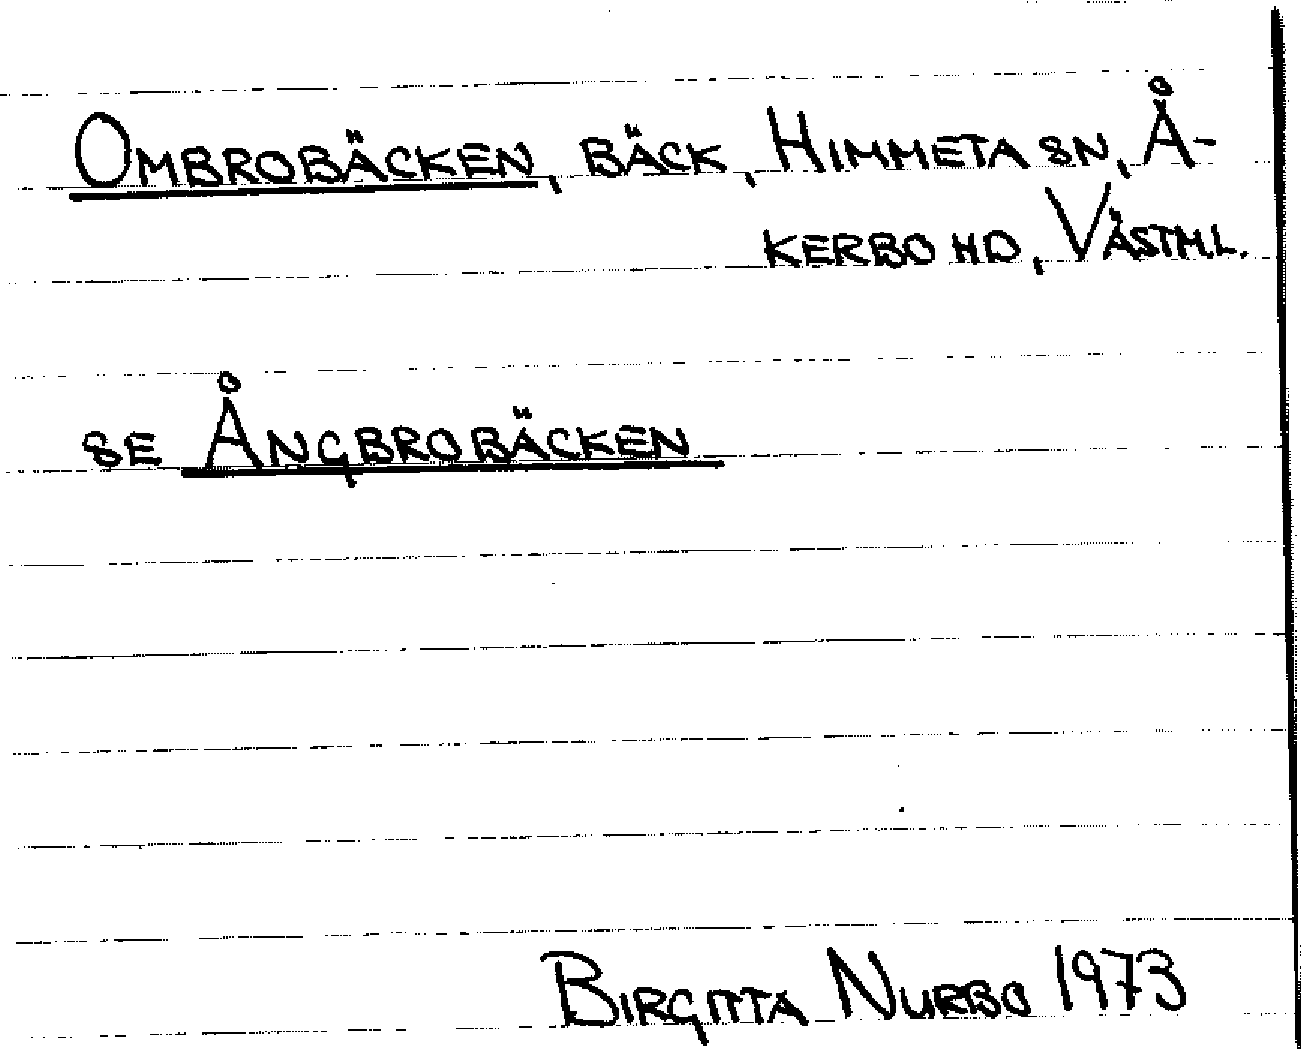 OMBROBÄCKEN, BÄCK, HIMMETA SN, Å-
KERBO HD, VÄSTML.
SE ÅNGBROBÄCKEN
BIRGITTA NURBO 1973